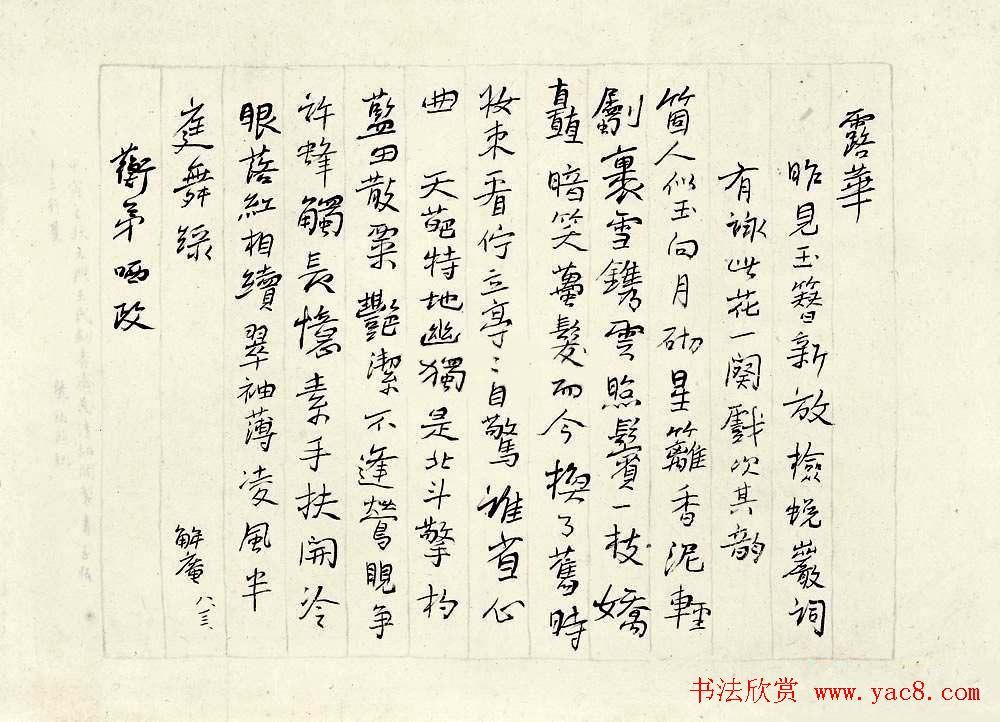 露華
昨見玉簪新放檢蛻巖詞
有詠此花一闋戲次其韵
箇人似玉向月砌星籬香泥輕
劚裏雪鐫雲照鬢一枝嬌
矗暗笑蠆髮而今換了舊時
妝束看佇立亭〻自驚誰省心
曲 天葩特地幽獨是北斗擎杓
藍田散粟艷潔不逢鶯覞争
許蜂觸長憶素手扶開冷
眼落紅相續翠袖薄凌風半
庭舞綠
蘅弟哂政
解庵 八三
书法欣赏 www.yac8.com